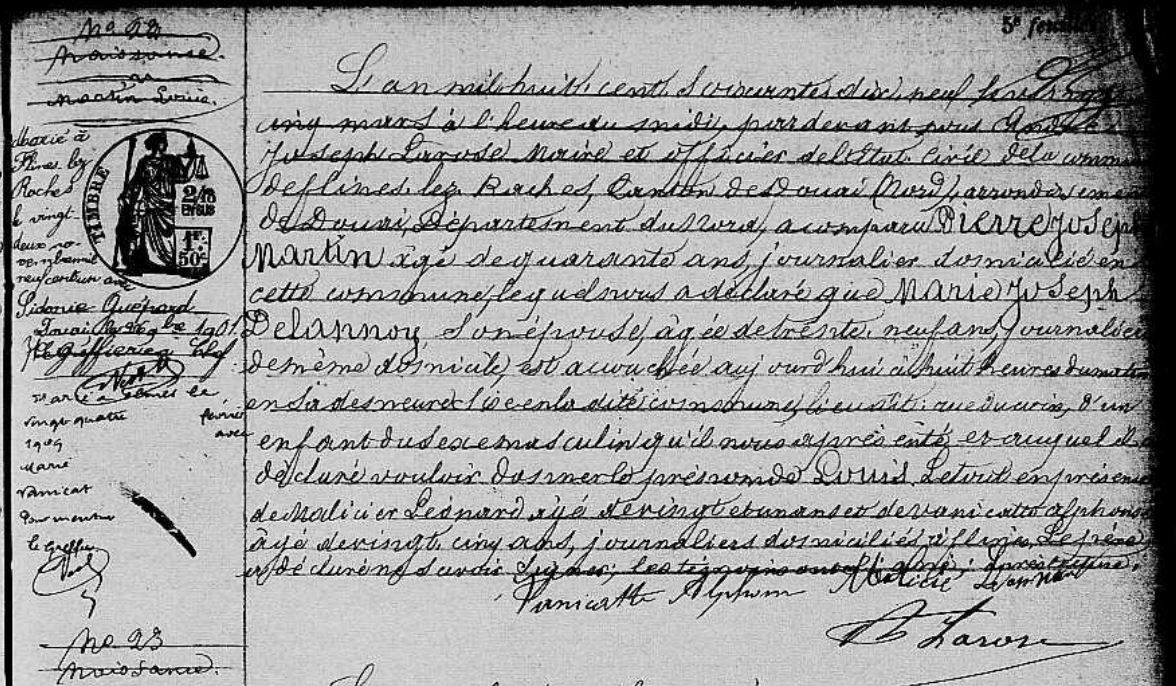 5e
No 22
Naissance.
Martin Louis.
Marié à
Flines lez
Raches
le vingt-
deux no-
vembre mil
neuf cent un avec
Sidonie Quépard
1901.
Le Greffier
TIMBRE
2/10
EN SUS
1F.
50c
Marié à le
vingt quatre février
1909 avec
Marie
Vanicat
Pour mention
le Greffier
L'an mil huit cent soixante dix neuf le vingt
cinq mars à l'heure du midi, pardevant nous André
Joseph Larose Maire et officier de l'état civil de la commune
de flines lez Raches, Canton de Douai (Nord), arrondissement
de Douai, Département du Nord, a comparu Pierre Joseph
Martin âgé de quarante ans, journalier domicilié en
cette commune, lequel nous a déclaré que Marie Joseph
Delannoy, son épouse, âgée de trente neuf ans, journalière
de même domicile, est accouchée aujourd'hui à huit heures du matin
en sa demeure sise en la dite commune, lieu dit: rue du
enfant du sexe masculin qu'il nous a présenté et auquel il a
déclaré vouloir donner le prénom de Louis. Le tout en présence
de Malicier Léonard âgé de vingt et un ans et de Vanicatte alphonse
âgé de vingt cinq ans, journaliers domiciliés à flines, Le père
a déclaré ne savoir signer, les témoins ont signé, après lecture.
Vanicatte Alphons Léonard
Larose
No 23
Naissance.